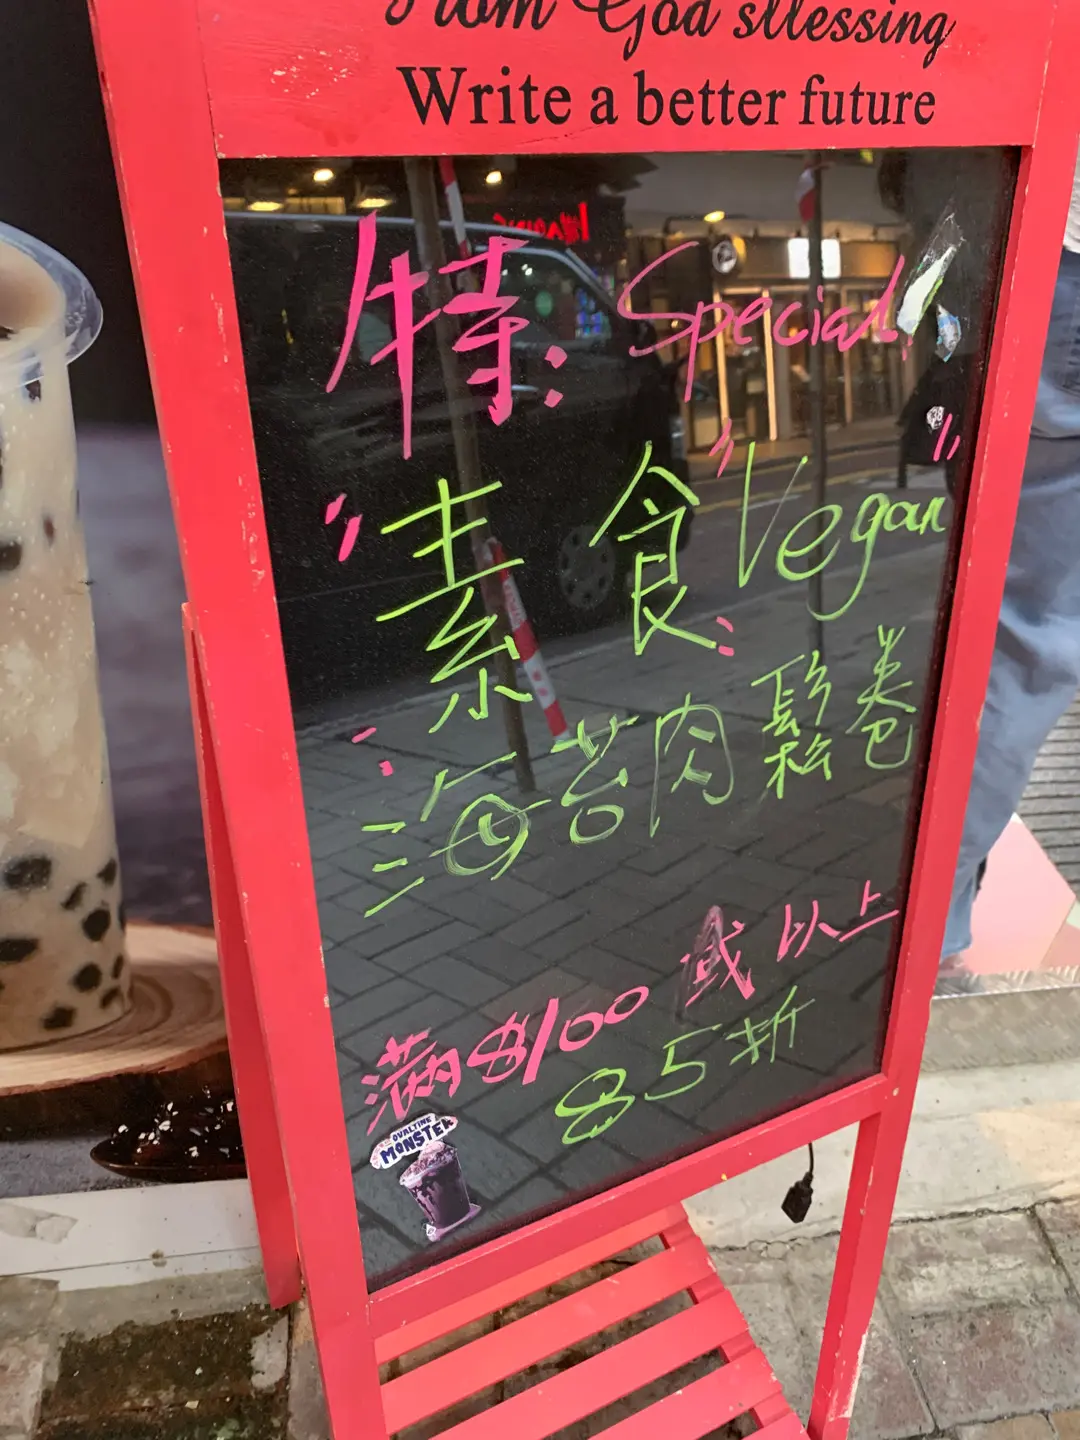 From God sllessing
Write a better future
特: Special!
"素食" Vegan"
海苔肉鬆卷
滿$100或以上
85折
OVALTINE
MONSTER